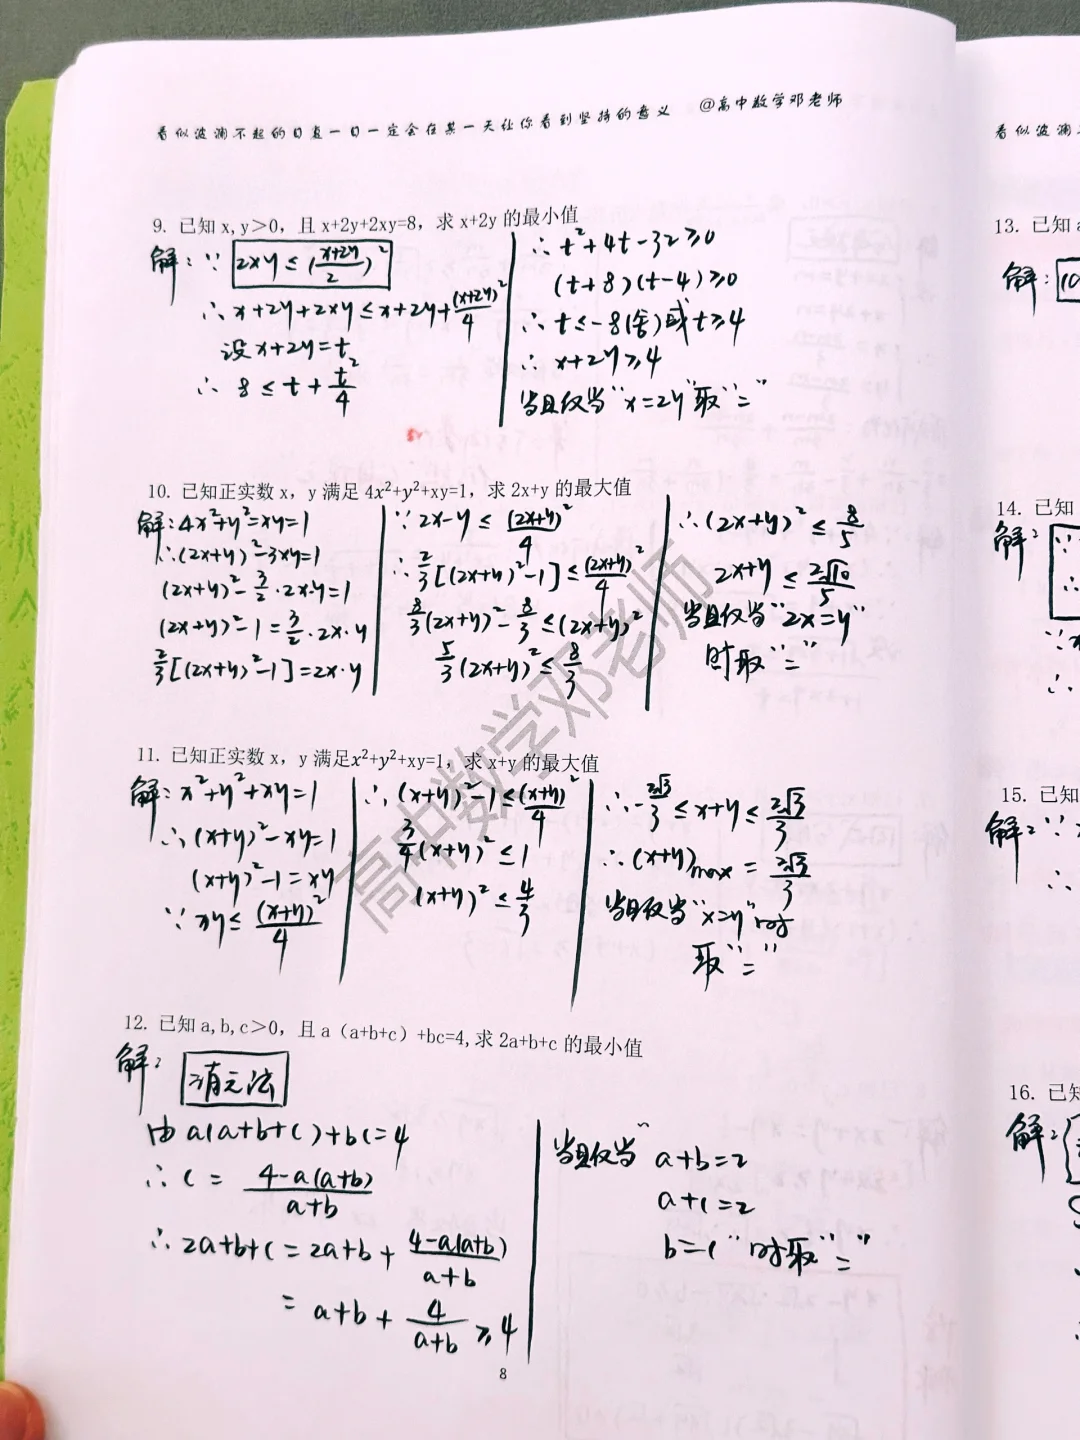 看似波澜不起的日复一日一定会在某一天让你看到坚持的意义 @高中数学邓老师
9. 已知 x,y＞0，且 x+2y+2xy=8，求 x+2y 的最小值
解：∵ 2xy ≤ (\frac{x+2y}{2})^2
∴ x+2y+2xy ≤ x+2y+\frac{(x+2y)^2}{4}
设 x+2y=t
∴ 8 ≤ t + \frac{t^2}{4}
∴ t^2+4t-32≥0
(t+8)(t-4)≥0
∴ t≤-8(舍)或t≥4
∴ x+2y≥4
当且仅当“x=2y”取“=”
10. 已知正实数 x，y 满足 4x²+y²+xy=1，求 2x+y 的最大值
解：4x²+y²=xy=1
∴(2x+y)²-3xy=1
(2x+y)²-\frac{3}{2}·2x·y=1
(2x+y)²-1=\frac{3}{2}·2x·y
\frac{2}{3}[(2x+y)²-1]=2x·y
∵ 2x·y ≤ \frac{(2x+y)²}{4}
∴ \frac{2}{3}[(2x+y)²-1] ≤ \frac{(2x+y)²}{4}
\frac{8}{3}(2x+y)²-\frac{8}{3} ≤ (2x+y)²
\frac{5}{3}(2x+y)² ≤ \frac{8}{3}
∴(2x+y)² ≤ \frac{8}{5}
2x+y ≤ \frac{2\sqrt{10}}{5}
当且仅当“2x=y”
时取“=”
11. 已知正实数 x，y 满足x²+y²+xy=1，求 x+y 的最大值
解：x²+y²+xy=1
∴(x+y)²-xy=1
(x+y)²-1=xy
∵ xy ≤ \frac{(x+y)²}{4}
∴(x+y)²-1 ≤ \frac{(x+y)²}{4}
\frac{3}{4}(x+y)² ≤ 1
(x+y)² ≤ \frac{4}{3}
∴ -\frac{2\sqrt{3}}{3} ≤ x+y ≤ \frac{2\sqrt{3}}{3}
∴(x+y)max = \frac{2\sqrt{3}}{3}
当且仅当“x=y”时
取“=”
12. 已知 a,b,c＞0，且 a（a+b+c）+bc=4,求 2a+b+c 的最小值
解：消元法
由 a(a+b+c)+bc=4
∴ c = \frac{4-a(a+b)}{a+b}
∴ 2a+b+c = 2a+b+\frac{4-a(a+b)}{a+b}
= a+b+\frac{4}{a+b} ≥ 4
当且仅当“a+b=2
a+c=2
b=c”时取“=”
8
高中数学邓老师
13. 已知
解：
14. 已知
解：
15. 已知
解：∵
16. 已知
解：